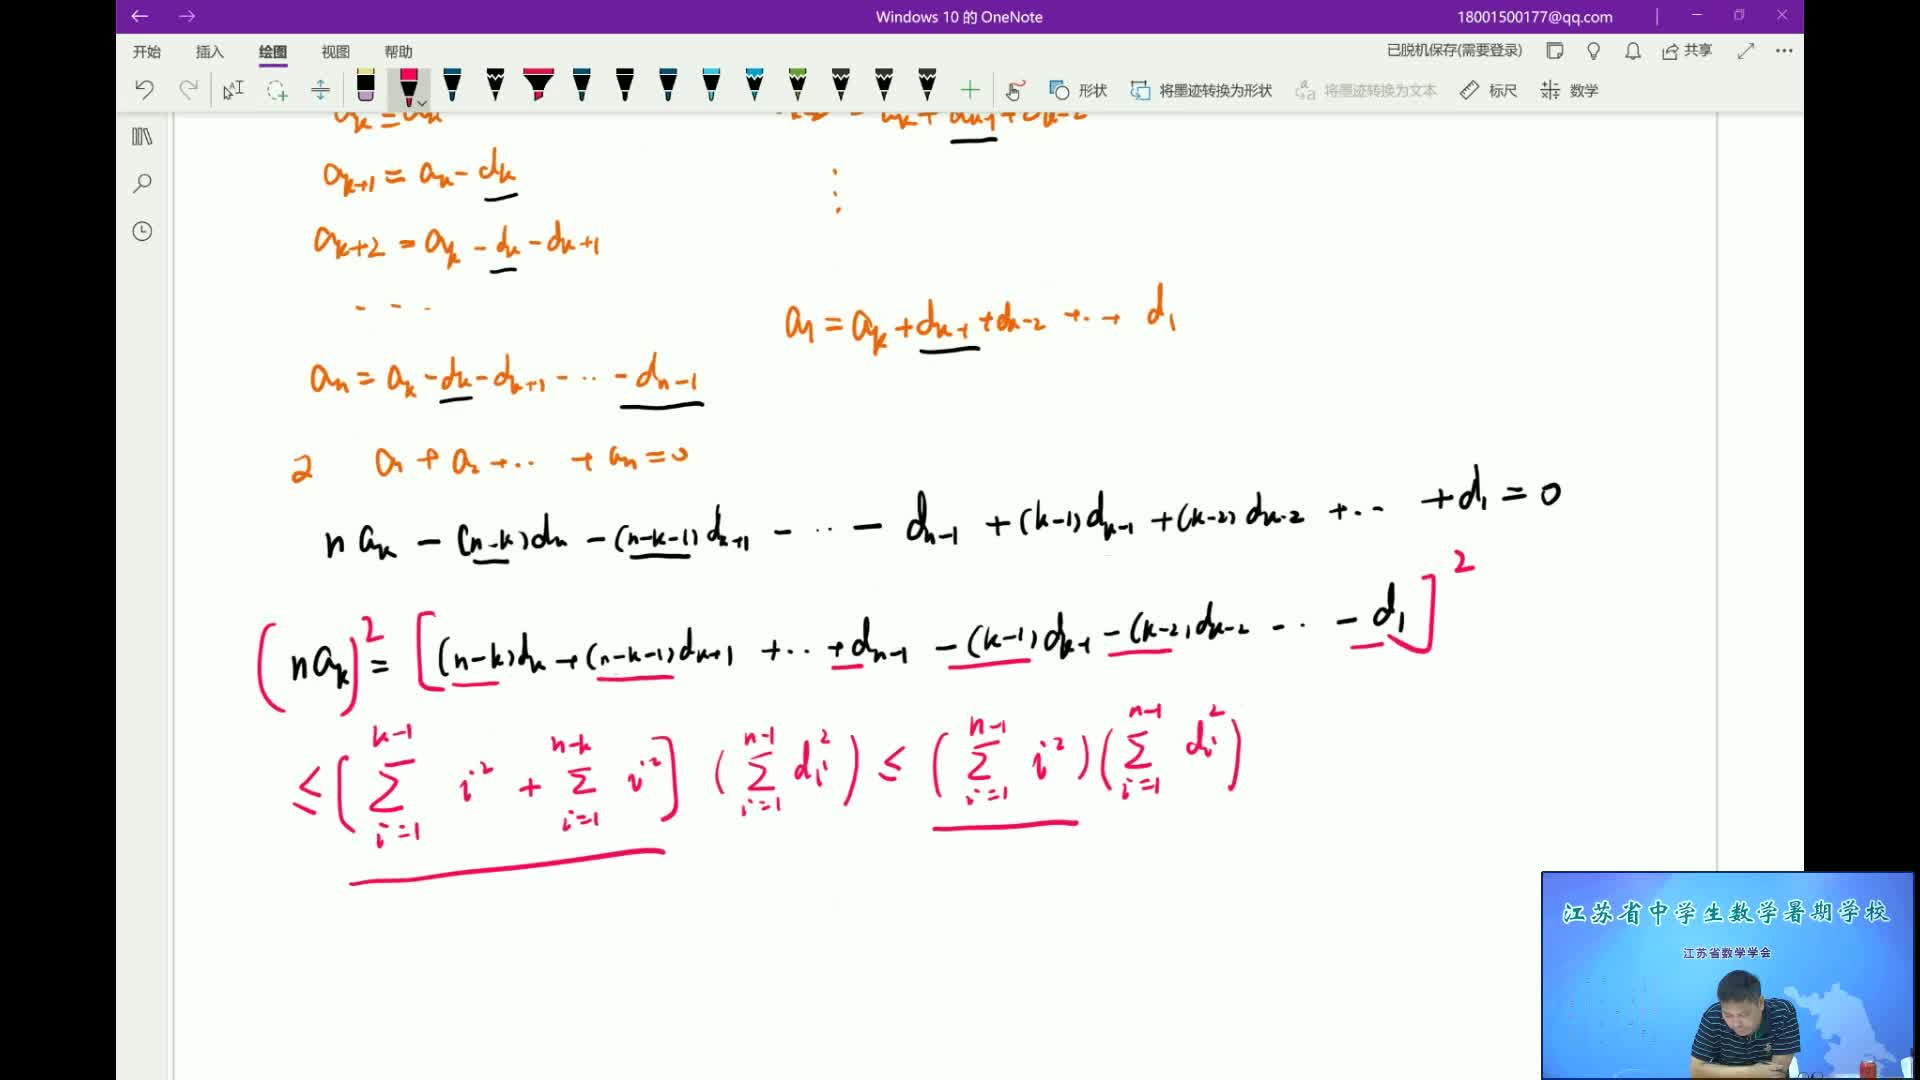 Windows 10 的 OneNote
18001500177@qq.com
开始 插入 绘图 视图 帮助
已脱机保存(需要登录) 共享
形状 将墨迹转换为形状 将墨迹转换为文本 标尺 数学
a_{k+1} = a_k - d_k
a_{k+2} = a_k - d_k - d_{k+1}
...
a_n = a_k - d_k - d_{k+1} - ... - d_{n-1}
a_1 = a_k + d_{k-1} + d_{k-2} + ... + d_1
2 a_1 + a_2 + ... + a_n = 0
n a_k - (n-k)d_k - (n-k-1)d_{k+1} - ... - d_{n-1} + (k-1)d_{k-1} + (k-2)d_{k-2} + ... + d_1 = 0
(n a_k)^2 = [(n-k)d_k + (n-k-1)d_{k+1} + ... + d_{n-1} - (k-1)d_{k-1} - (k-2)d_{k-2} - ... - d_1]^2
≤ [∑_{i=1}^{k-1} i^2 + ∑_{i=1}^{n-k} i^2] (∑_{i=1}^{n-1} d_i^2) ≤ (∑_{i=1}^{n-1} i^2)(∑_{i=1}^{n-1} d_i^2)
江苏省中学生数学暑期学校
江苏省数学学会